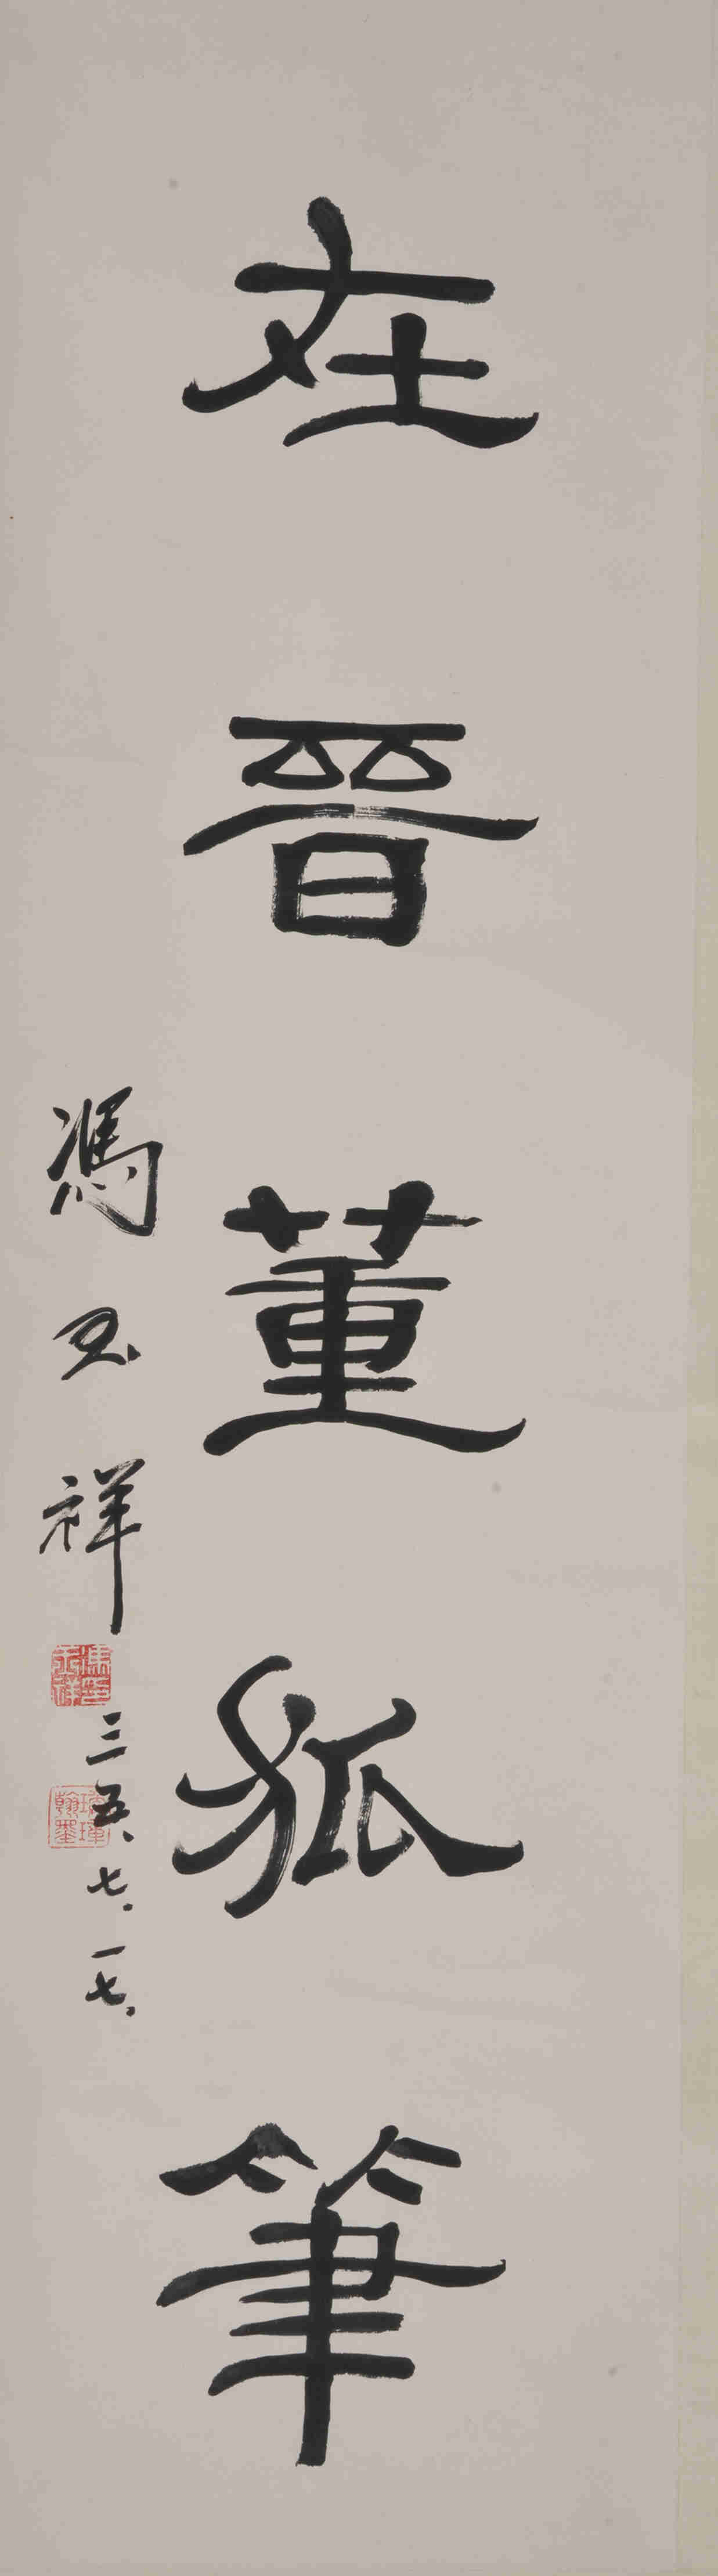 在晉董狐筆
馮玉祥
三五、七.一七.